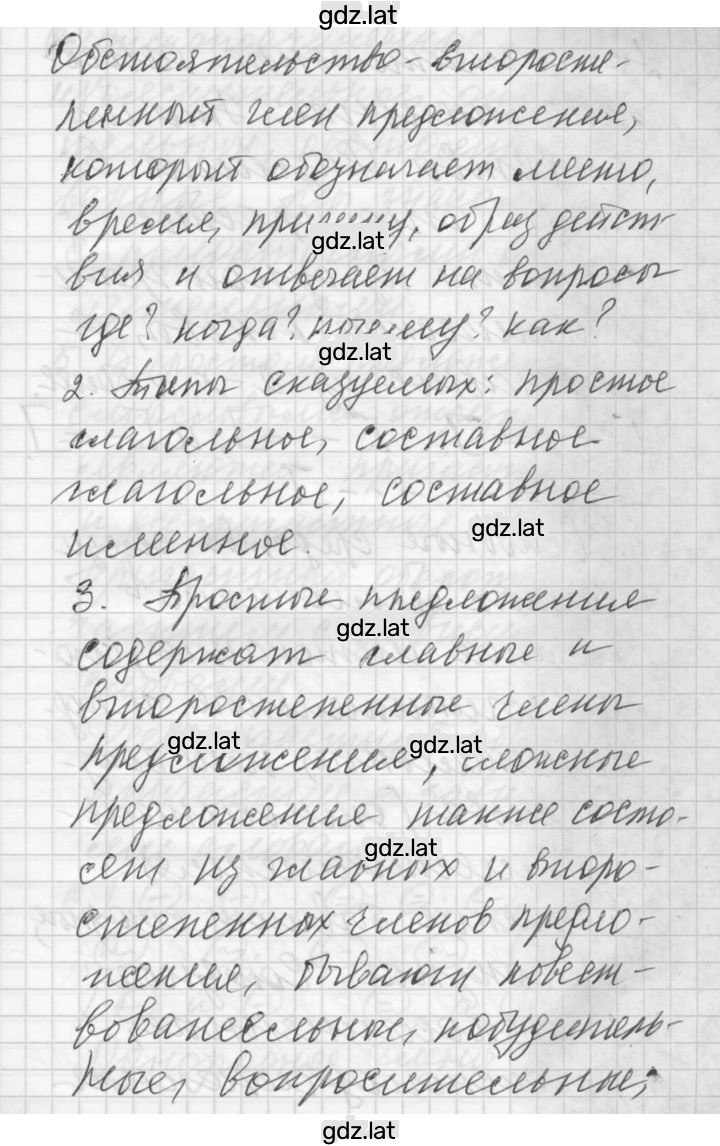 gdz.lat
Обстоятельство - второсте-
пенный член предложения,
который обозначает место,
время, причину, образ дейст-
gdz.lat
вия и отвечает на вопросы
где? когда? почему? как?
gdz.lat
2. Типы сказуемых: простое
глагольное, составное
глагольное, составное
gdz.lat
именное.
3. Простые предложения
gdz.lat
содержат главные и
второстепенные члены
gdz.lat gdz.lat
предложения, сложные
предложения также состо-
gdz.lat
из главных и второ-
степенных членов предло-
жения, бывают повест-
вовательные, побудитель-
ные, вопросительные;
gdz.lat